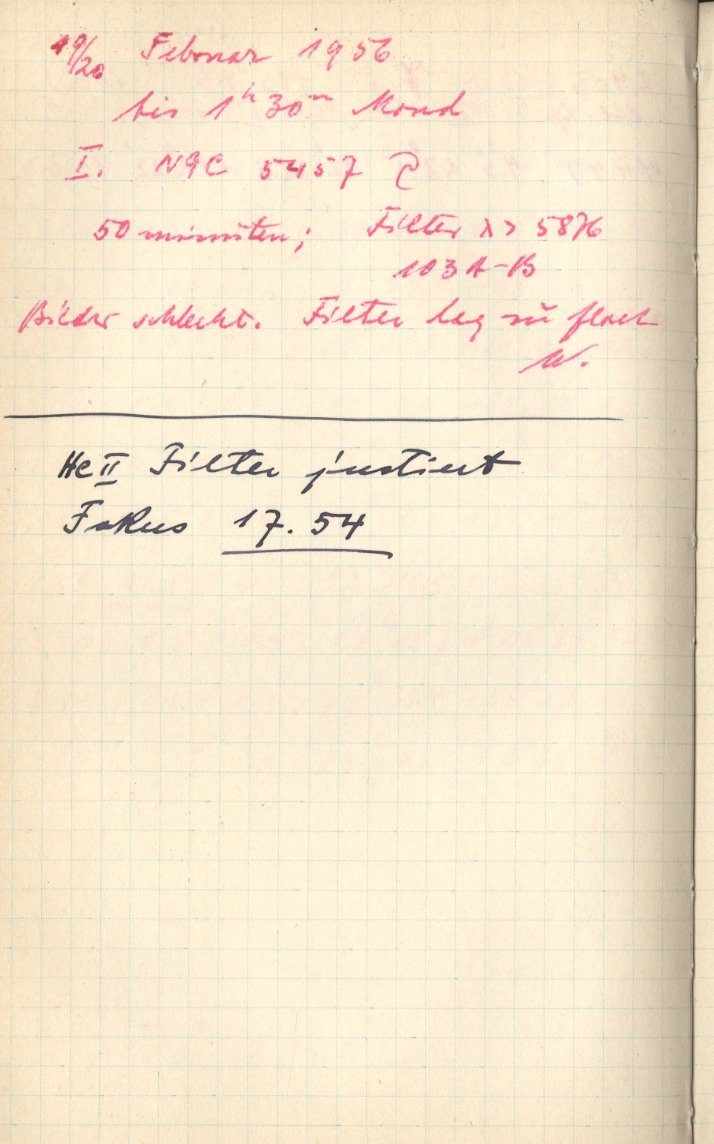 19/20 Februar 1956
bis 1h 30m Mond
I. NGC 5457
50 minuten; Filter λ> 5876
103A-B
Bilder schlecht. Filter lag zu flach
W.
He II Filter justiert
Fokus 17.54